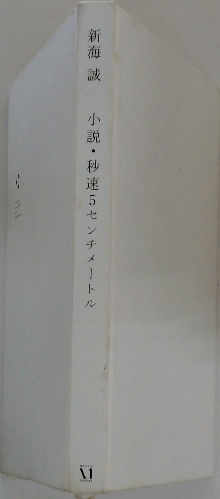 新海 誠 小説・秒速5センチメートル